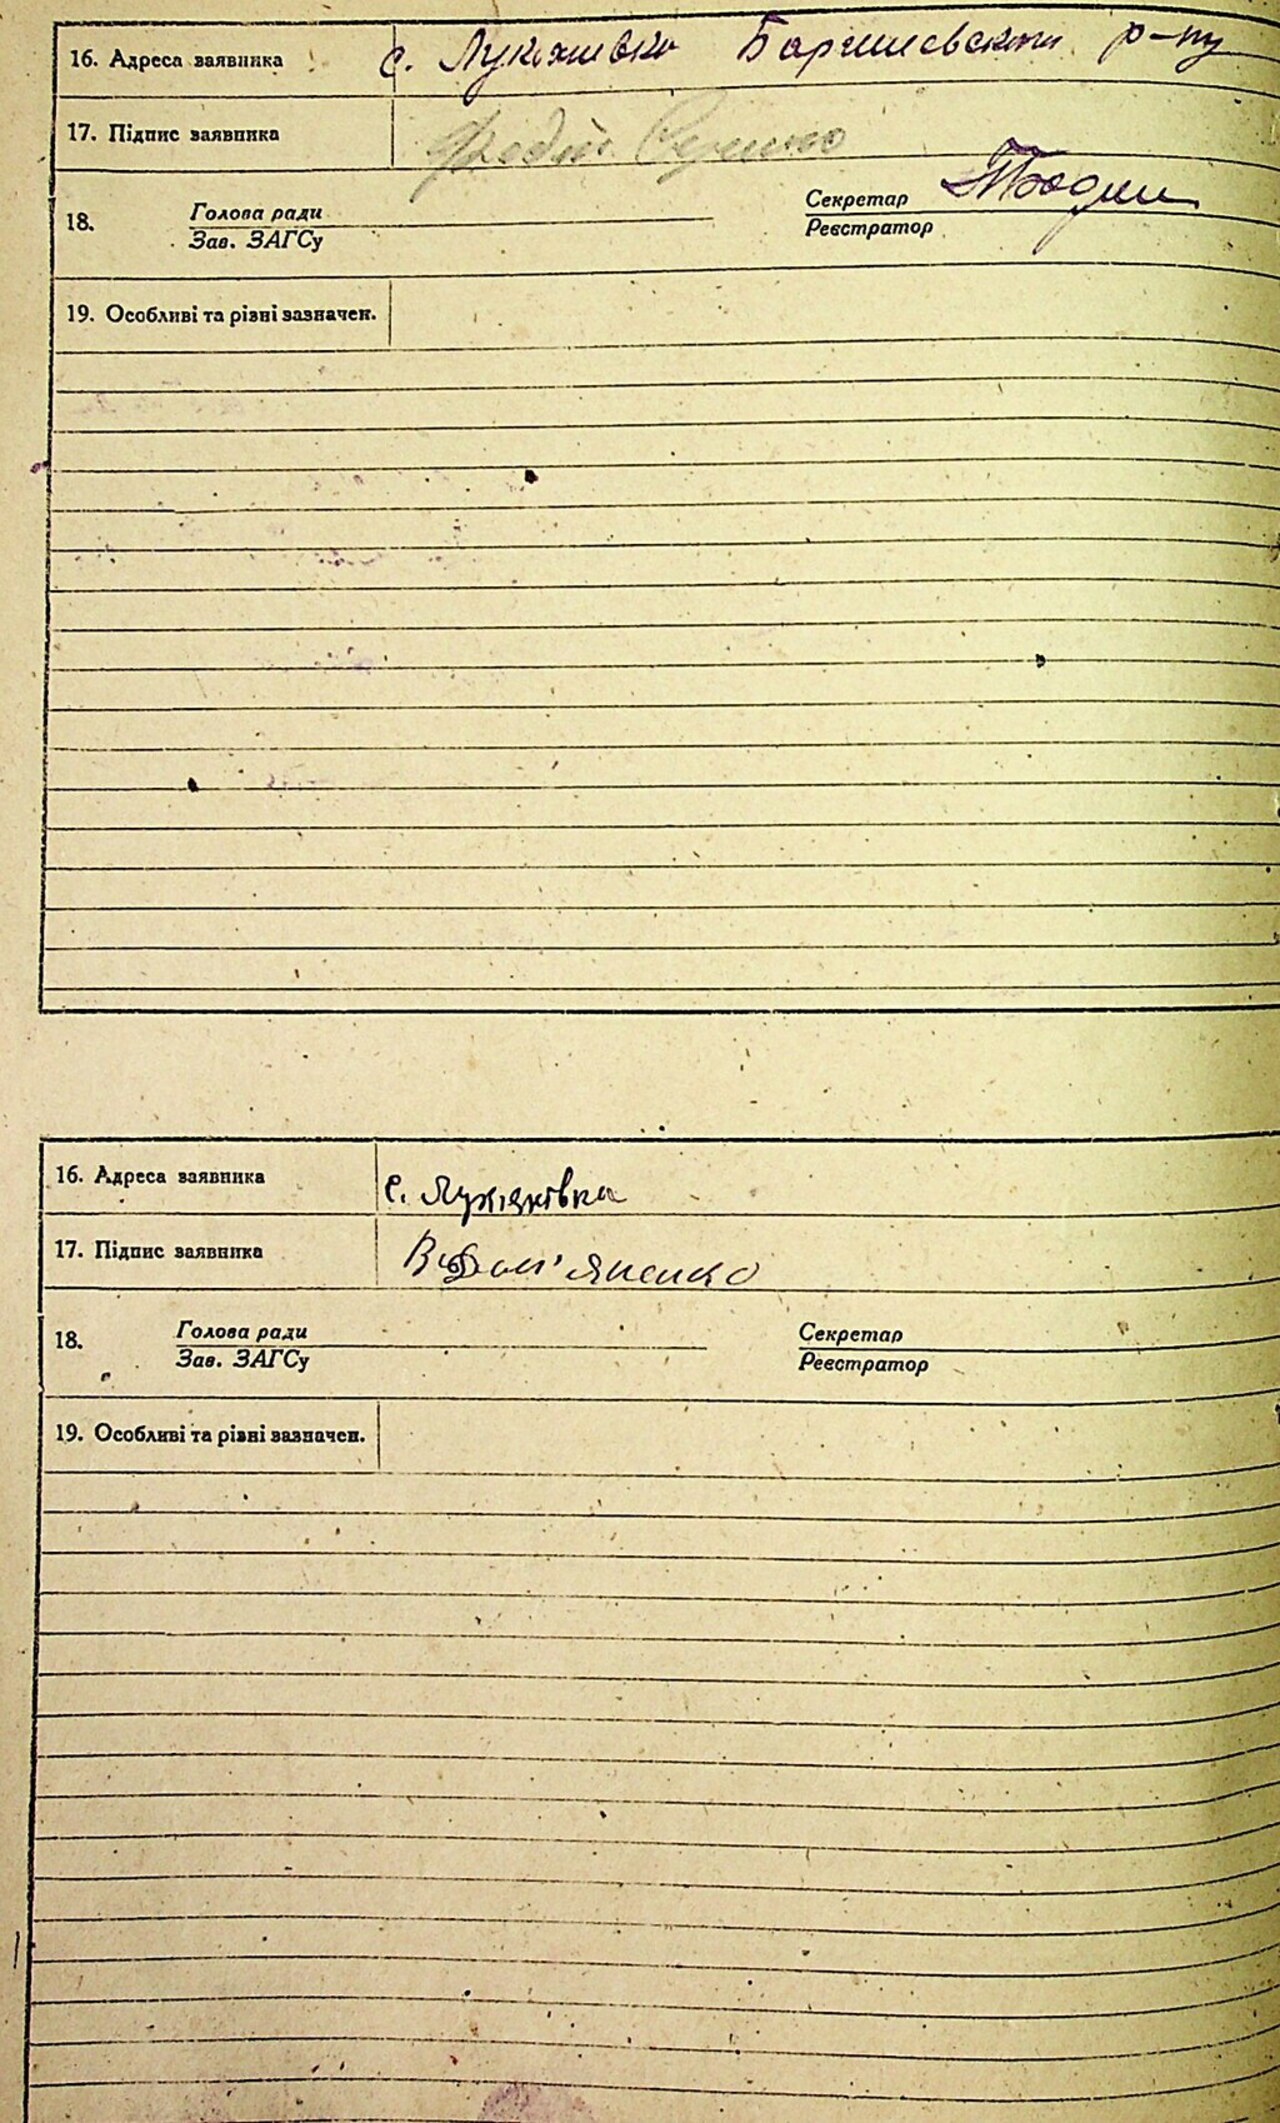 16. Адреса заявника с. Лукяшівка Баришевского р-ну
17. Підпис заявника
18. Голова ради Секретар
Зав. ЗАГСу Реєстратор
19. Особливі та різні зазначен.
16. Адреса заявника с. Лукяшівка
17. Підпис заявника Дем'яненко
18. Голова ради Секретар
Зав. ЗАГСу Реєстратор
19. Особливі та різні зазначен.